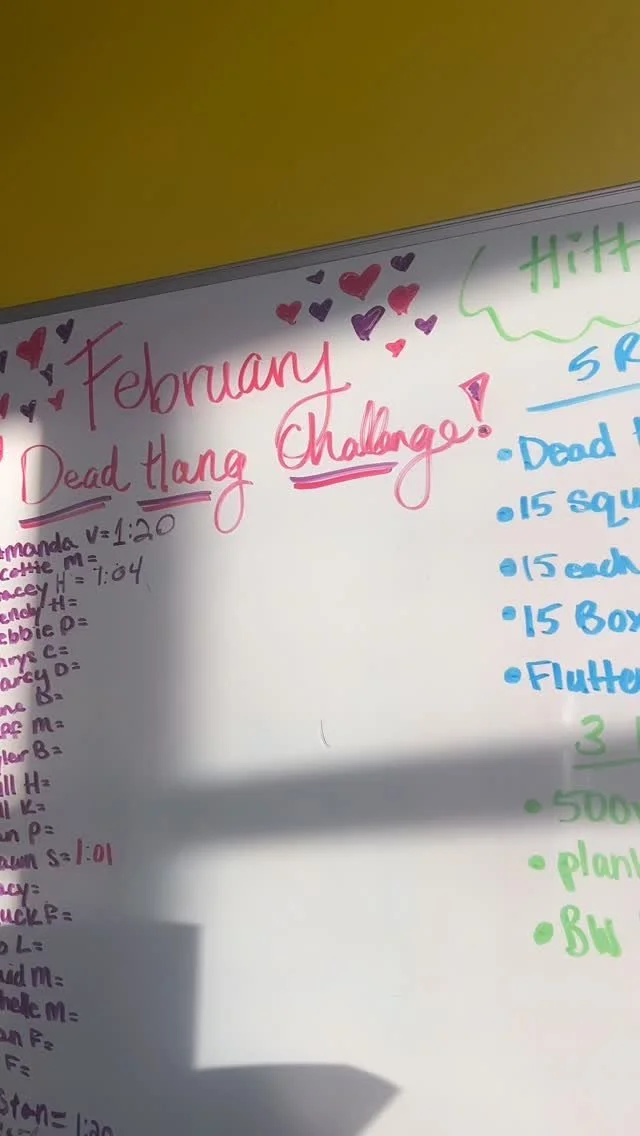 February
Dead Hang Challenge!
manda V=1:20
cottie M=
acey H=1:04
endy H=
ebbie D=
hrys C=
arcy D=
B=
M=
ler B=
ill H=
ll K=
an P=
awn S=1:01
acy=
uck F=
L=
id M=
helle M=
an F=
F=
Stan=1:20
Hitt
5 R
• Dead
• 15 squ
• 15 each
• 15 Box
• Flutte
3
• 500
• plan
• BW